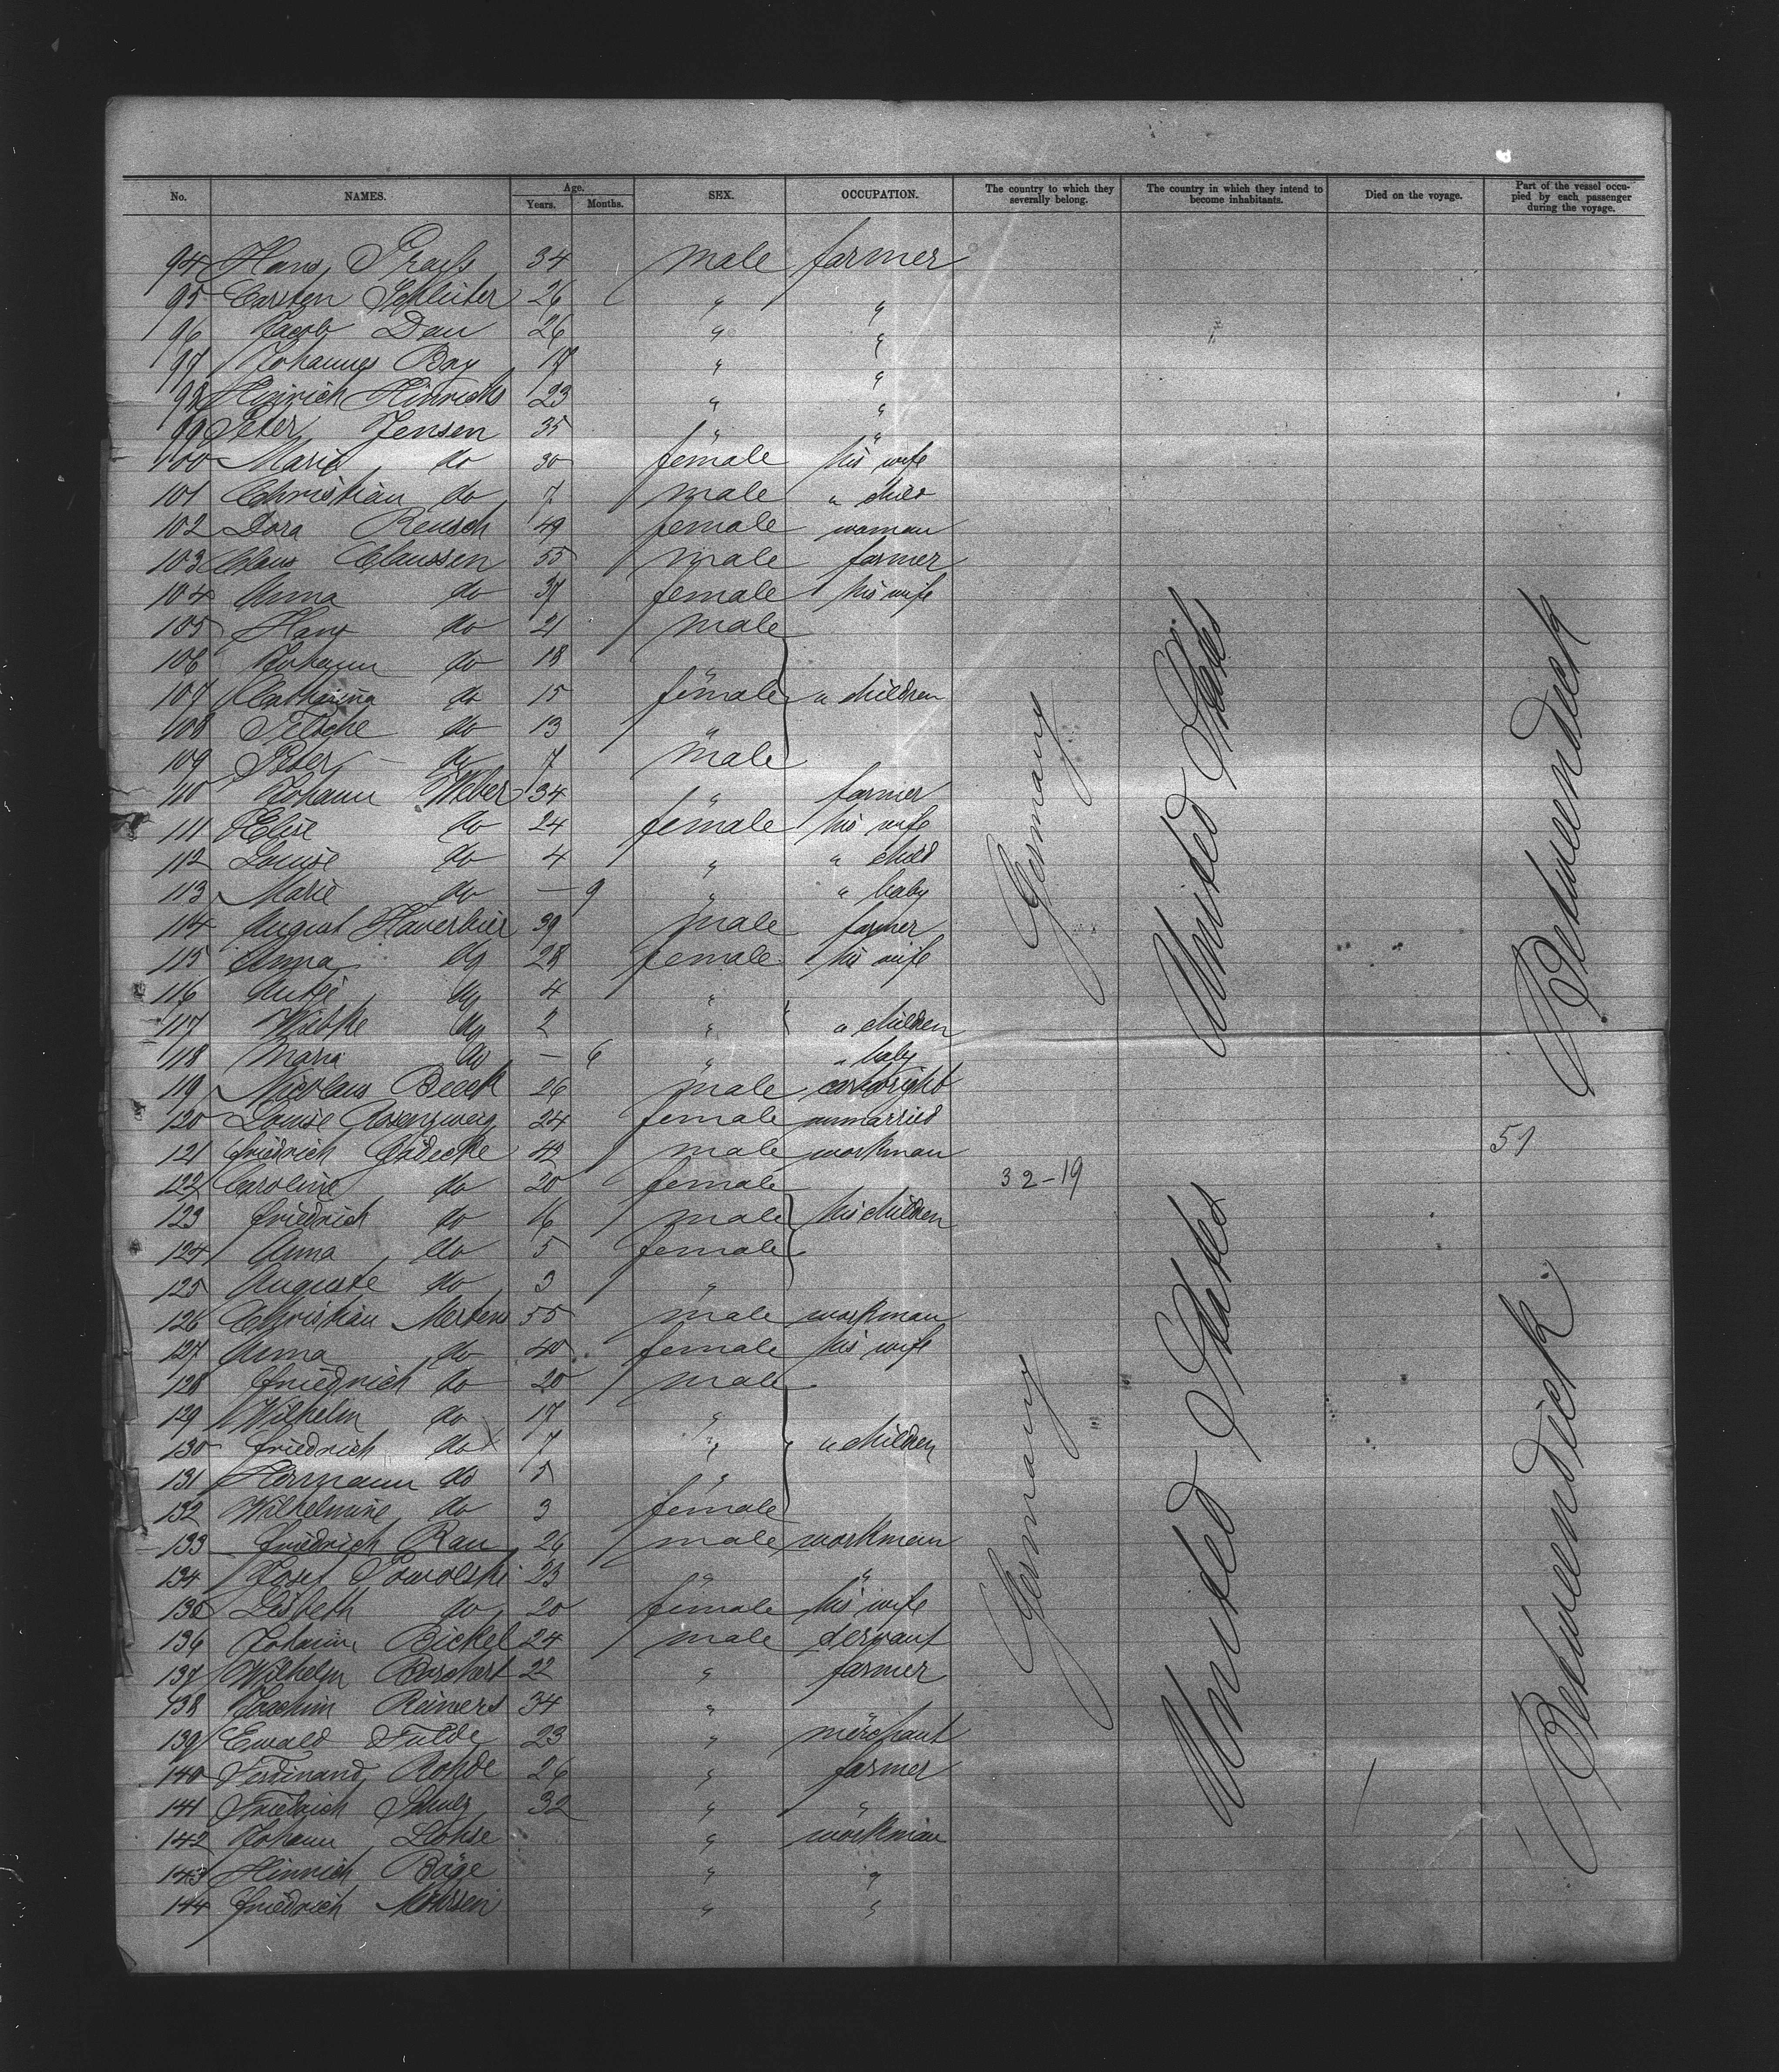 No. NAMES. Age. Years. Months. SEX. OCCUPATION. The country to which they severally belong. The country in which they intend to become inhabitants. Died on the voyage. Part of the vessel occupied by each passenger during the voyage.
94 Hans 34 male farmer
95 Carsten Schlüter 26 " "
96 Jacob Dau 26 " "
97 Johannes Boy 17 " "
98 Hinrich Hinrichs 23 " "
99 Peter Jensen 35 " "
100 Marie do 30 female his wife
101 Christian do 7 male " child
102 Dora Reusch 49 female woman
103 Claus Claussen 55 male farmer
104 Anna do 37 female his wife
105 Hans do 21 male
106 Johann do 18 "
107 Catharina do 15 female " children
108 do 13 "
109 Peter do 7 male
110 Johann Weber 34 " farmer
111 Elise do 24 female his wife
112 Louise do 4 " " child
113 Marie do — 9 " " baby
114 August 39 male farmer
115 Anna do 28 female his wife
116 Antje do 4 "
117 Wiebke do 2 " " children
118 Maria do — 6 " " baby
119 Nicolaus Beeck 26 male cartwright
120 Louise Rosenzweig 24 female unmarried
121 Friedrich Gädecke 42 male workman
122 Caroline do 20 female
123 Friedrich do 16 male his children
124 Anna do 5 female
125 Auguste do 3 "
126 Christian Mertens 55 male workman
127 Anna do 40 female his wife
128 Friedrich do 20 male
129 Wilhelm do 17 "
130 Friedrich do 7 " " children
131 Herrmann do 5 "
132 Wilhelmine do 3 female
133 Friedrich Rau 26 male workman
134 Josef 23 " "
135 Lisbeth do 20 female his wife
136 Johann Bickel 24 male servant
137 Wilhelm Borchert 22 " farmer
138 Joachim Reimers 34 "
139 Ewald Fulde 23 " merchant
140 Ferdinand Rohde 26 " farmer
141 Friedrich Schulz 32 " "
142 Johann Lohse " workman
143 Hinrich Böge " "
144 Friedrich " "
Germany
United States
Betweendeck
51
32-19
Germany
United States
Betweendeck